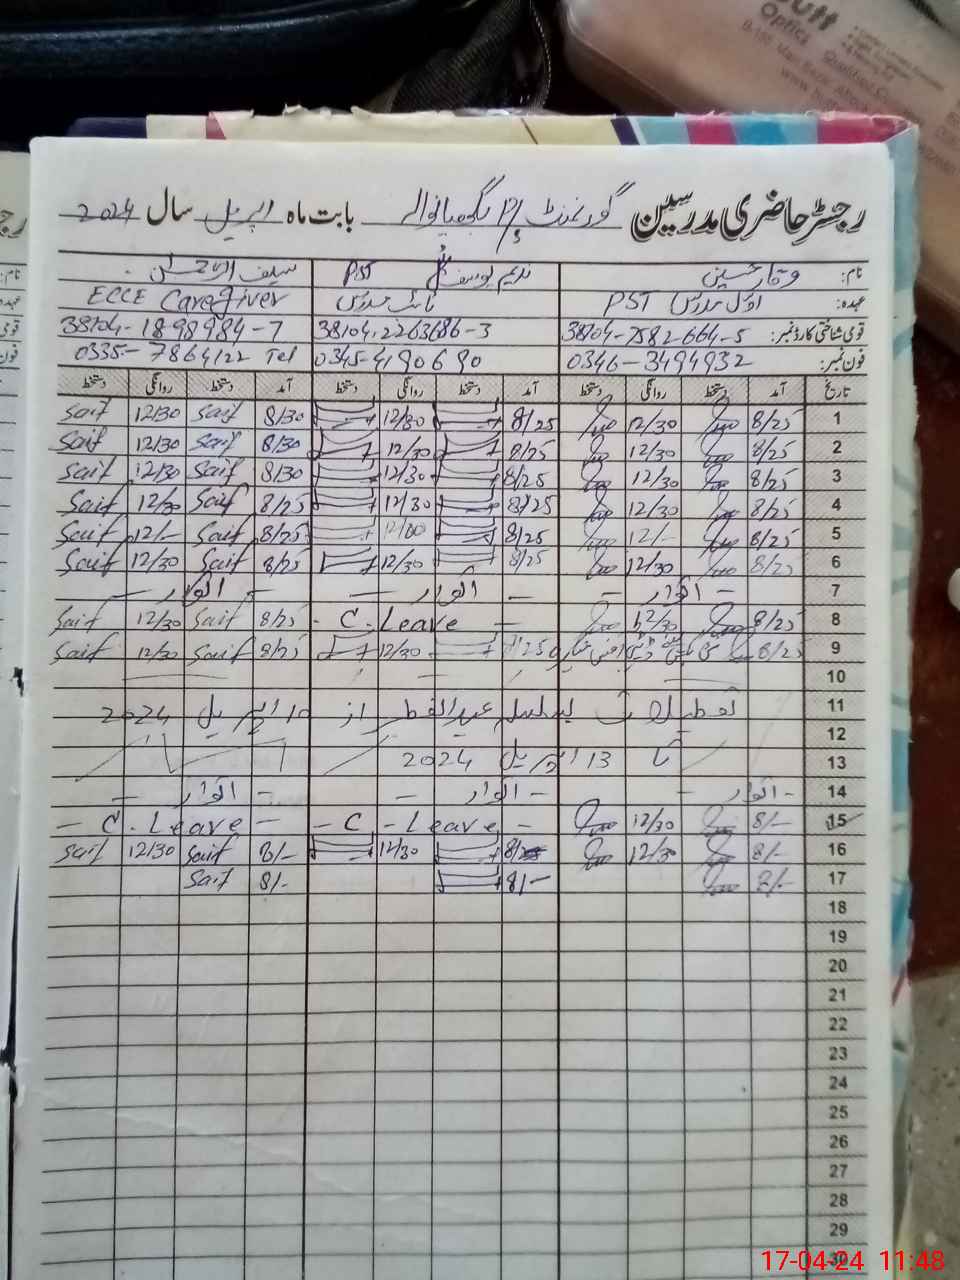 Optics
رجسٹر حاضری مدرسین گورنمنٹ بابت ماہ اپریل سال 2024
نام: وقار حسین ندیم یوسف PST سیف
عہدہ: اول مدرس PST نائب مدرس ECCE Caregiver
قومی شناختی کارڈ نمبر: 38104-7582664-5 38104-2263686-3 38104-1898984-7
فون نمبر: 0346-3494932 0345-4190690 0335-7864122 Tel
تاریخ آمد دستخط روانگی دستخط آمد دستخط روانگی دستخط آمد دستخط روانگی دستخط
1 8/25 12/30 8/25 12/30 8/30 Saif 12/30 Saif
2 8/25 12/30 8/25 12/30 8/30 Saif 12/30 Saif
3 8/25 12/30 8/25 12/30 8/30 Saif 12/30 Saif
4 8/25 12/30 8/25 12/30 8/25 Saif 12/30 Saif
5 8/25 12/- 8/25 12/00 8/25 Saif 12/- Saif
6 8/25 12/30 8/25 12/30 8/25 Saif 12/30 Saif
7 - اتوار - - اتوار - - اتوار -
8 8/25 12/30 - C. Leave - 8/25 Saif 12/30 Saif
9 8/25 12/30 8/25 Saif 12/30 Saif
10
11 تعطیلات بسلسلہ عیدالفطر از 10 اپریل 2024
12
13 تا 13 اپریل 2024
14 - اتوار - - اتوار - - اتوار -
15 8/- 12/30 - C - Leave - - C. Leave -
16 8/- 12/30 12/30 8/- Saif 12/30 Saif
17 8/- 8/- 8/- Saif
18
19
20
21
22
23
24
25
26
27
28
29
30
17-04-24 11:48